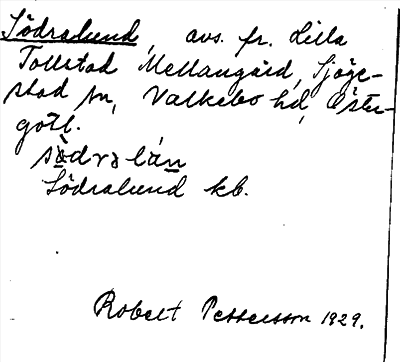 Södralund, avs. fr. Lilla
Tollstad Mellangård, Sjöge-
stad sn, Valkebo hd, Öster-
götl.
sö̀dralán
Södralund kb.
Robert Pettersson 1929.